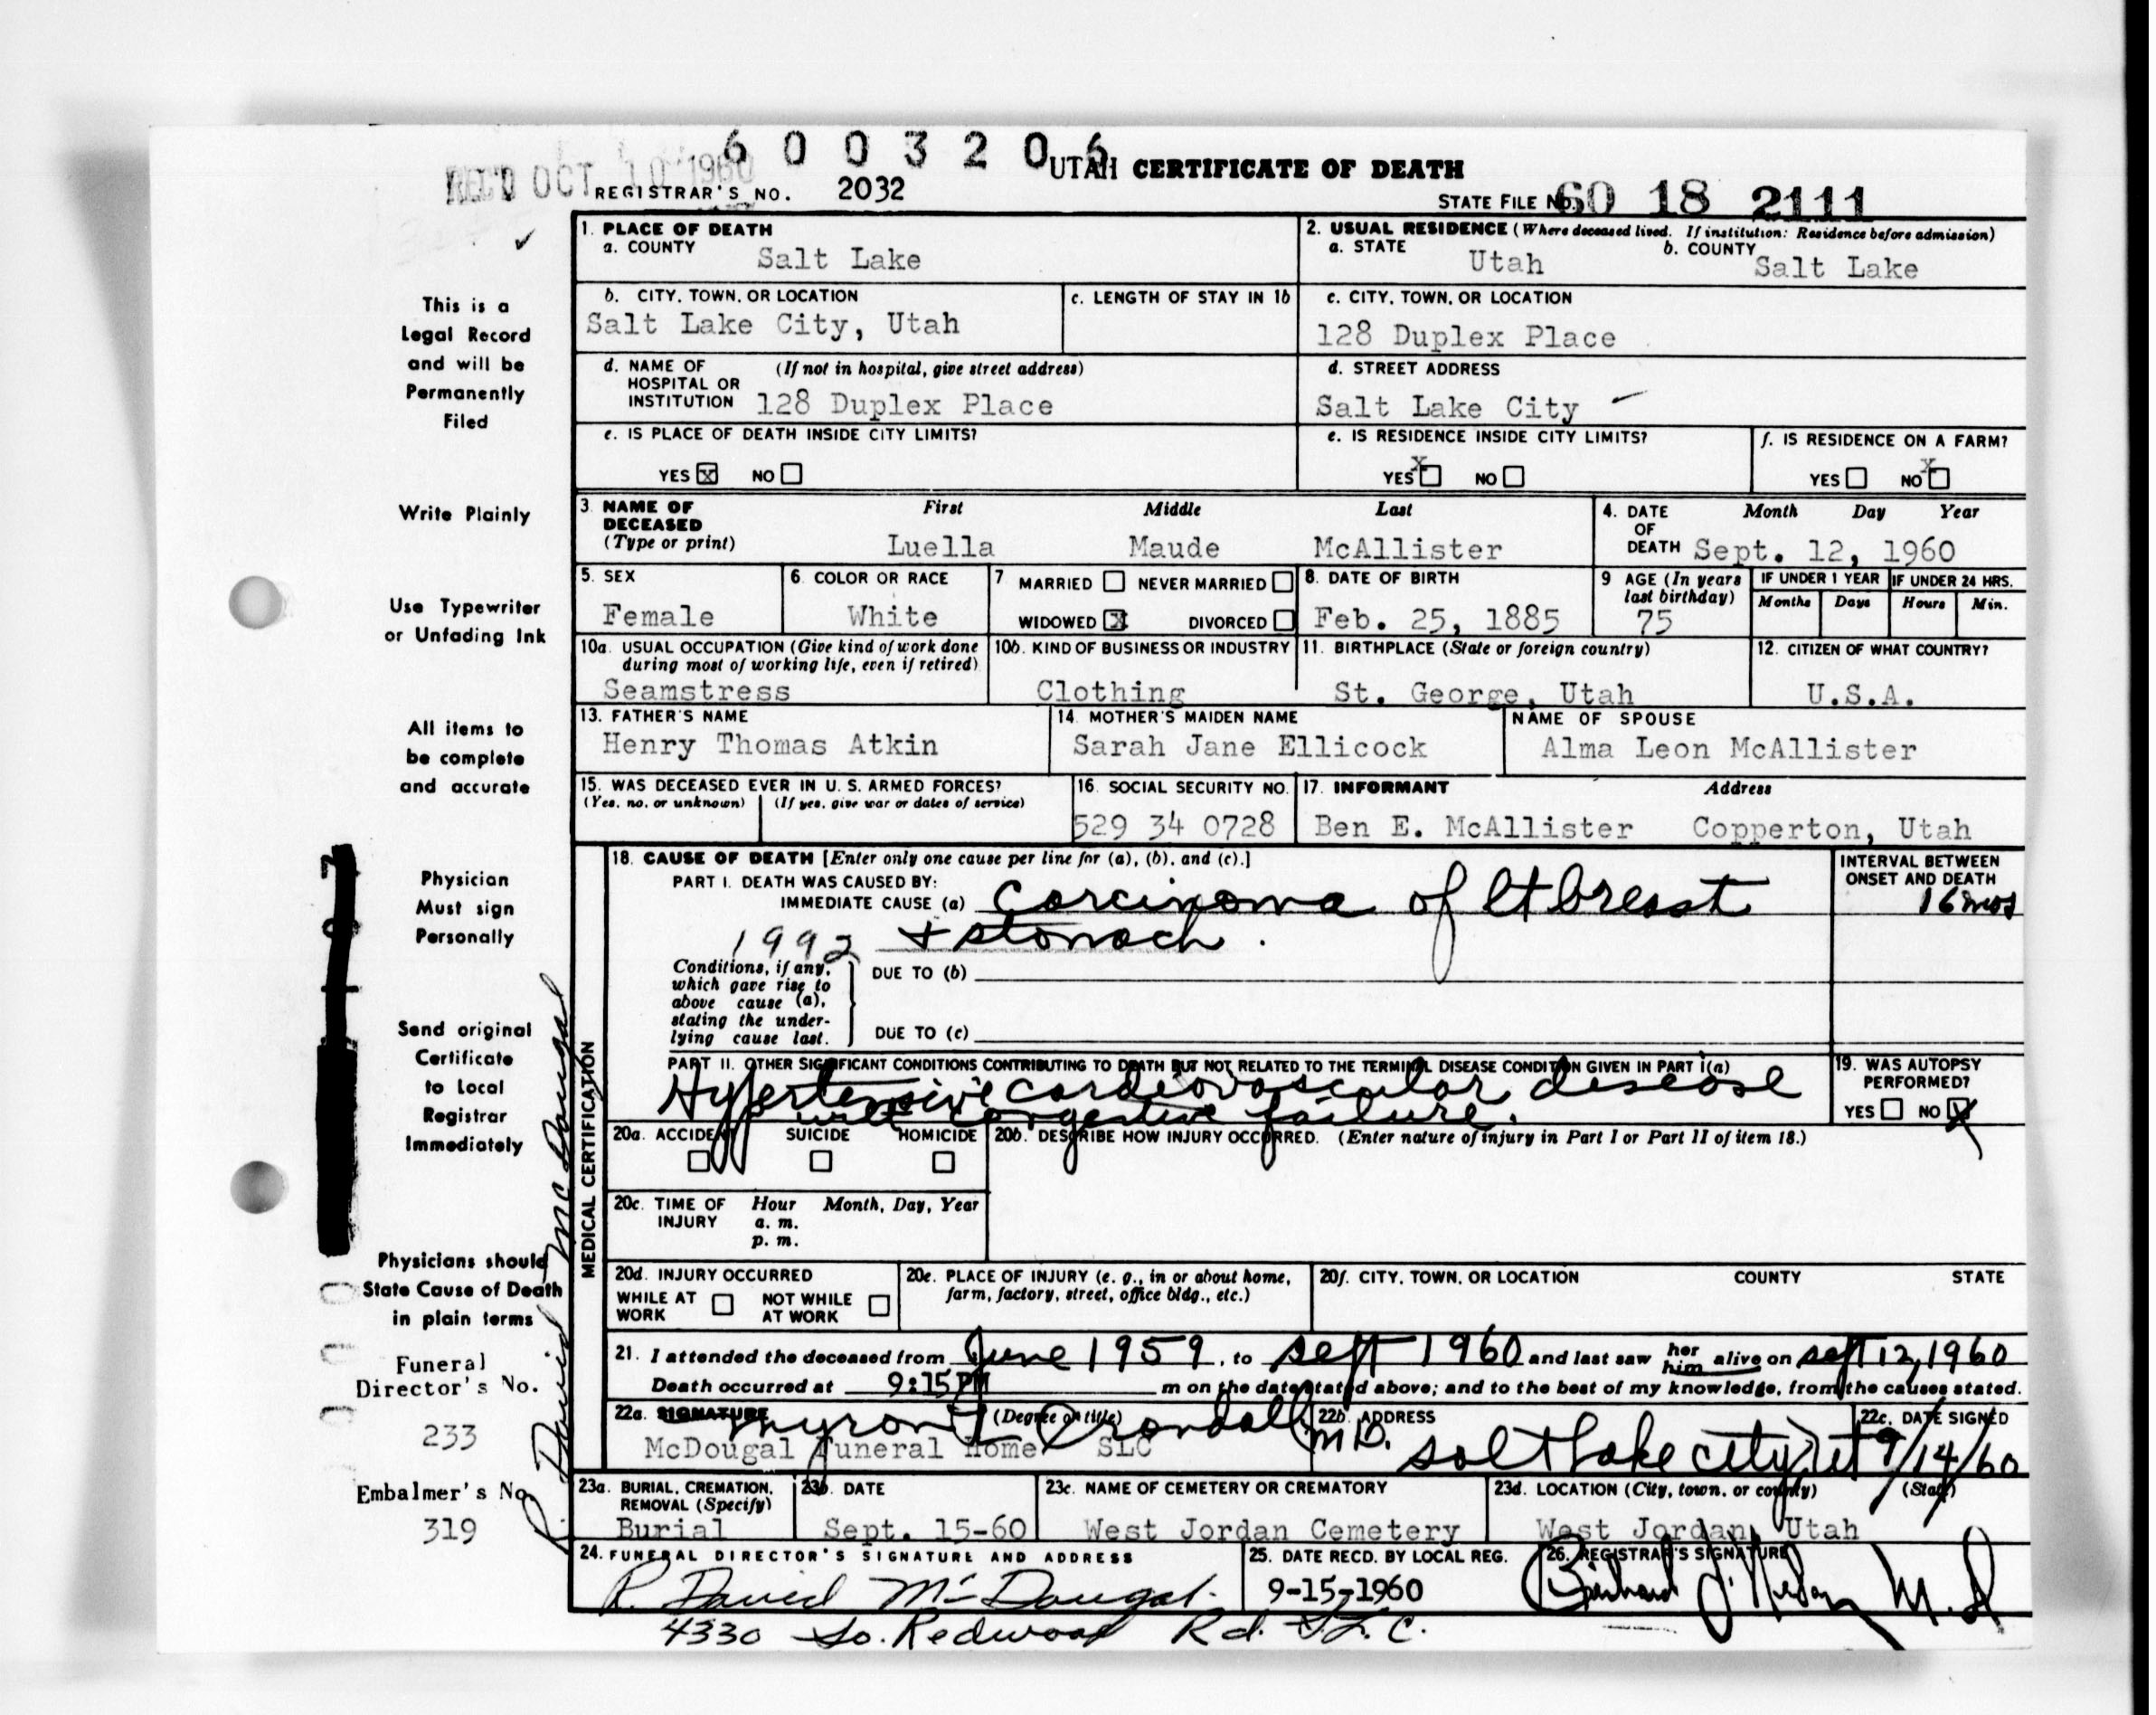 6 0 0 3 2 0 6
REC'D OCT 10 1960
UTAH CERTIFICATE OF DEATH
REGISTRAR'S NO. 2032
STATE FILE No. 60 18 2111
1. PLACE OF DEATH
a. COUNTY Salt Lake
2. USUAL RESIDENCE (Where deceased lived. If institution: Residence before admission)
a. STATE Utah b. COUNTY Salt Lake
b. CITY, TOWN, OR LOCATION Salt Lake City, Utah
c. LENGTH OF STAY IN 1b
c. CITY, TOWN, OR LOCATION 128 Duplex Place
d. NAME OF HOSPITAL OR INSTITUTION (If not in hospital, give street address) 128 Duplex Place
d. STREET ADDRESS Salt Lake City
e. IS PLACE OF DEATH INSIDE CITY LIMITS?
YES X NO
e. IS RESIDENCE INSIDE CITY LIMITS?
YES X NO
f. IS RESIDENCE ON A FARM?
YES NO X
3. NAME OF DECEASED (Type or print)
First Middle Last
Luella Maude McAllister
4. DATE OF DEATH Month Day Year
Sept. 12, 1960
5. SEX Female
6. COLOR OR RACE White
7. MARRIED NEVER MARRIED
WIDOWED X DIVORCED
8. DATE OF BIRTH Feb. 25, 1885
9 AGE (In years last birthday) 75
IF UNDER 1 YEAR Months Days
IF UNDER 24 HRS. Hours Min.
10a. USUAL OCCUPATION (Give kind of work done during most of working life, even if retired) Seamstress
10b. KIND OF BUSINESS OR INDUSTRY Clothing
11. BIRTHPLACE (State or foreign country) St. George, Utah
12. CITIZEN OF WHAT COUNTRY? U.S.A.
13. FATHER'S NAME Henry Thomas Atkin
14. MOTHER'S MAIDEN NAME Sarah Jane Ellicock
NAME OF SPOUSE Alma Leon McAllister
15. WAS DECEASED EVER IN U. S. ARMED FORCES?
(Yes, no, or unknown) (If yes, give war or dates of service)
16. SOCIAL SECURITY NO. 529 34 0728
17. INFORMANT Address
Ben E. McAllister Copperton, Utah
MEDICAL CERTIFICATION
18. CAUSE OF DEATH [Enter only one cause per line for (a), (b), and (c).]
PART I. DEATH WAS CAUSED BY:
IMMEDIATE CAUSE (a) Carcinoma of lt breast
1992 + stomach.
INTERVAL BETWEEN ONSET AND DEATH
16 mos
Conditions, if any, which gave rise to above cause (a), stating the underlying cause last.
DUE TO (b)
DUE TO (c)
PART II. OTHER SIGNIFICANT CONDITIONS CONTRIBUTING TO DEATH BUT NOT RELATED TO THE TERMINAL DISEASE CONDITION GIVEN IN PART I(a)
Hypertensive cardiovascular disease
with congestive failure.
19. WAS AUTOPSY PERFORMED?
YES NO X
20a. ACCIDENT SUICIDE HOMICIDE
20b. DESCRIBE HOW INJURY OCCURRED. (Enter nature of injury in Part I or Part II of item 18.)
20c. TIME OF INJURY Hour Month, Day, Year
a. m.
p. m.
20d. INJURY OCCURRED
WHILE AT WORK NOT WHILE AT WORK
20e. PLACE OF INJURY (e. g., in or about home, farm, factory, street, office bldg., etc.)
20f. CITY, TOWN, OR LOCATION COUNTY STATE
21. I attended the deceased from June 1959, to Sept 1960 and last saw her him alive on Sept 12, 1960
Death occurred at 9:15 PM m on the date stated above; and to the best of my knowledge, from the causes stated.
22a. SIGNATURE (Degree or title)
Myron L Crandall M D.
McDougal Funeral Home SLC
22b. ADDRESS Salt Lake City Ut
22c. DATE SIGNED 9/14/60
23a. BURIAL, CREMATION, REMOVAL (Specify) Burial
23b. DATE Sept. 15-60
23c. NAME OF CEMETERY OR CREMATORY West Jordan Cemetery
23d. LOCATION (City, town, or county) (State)
West Jordan, Utah
24. FUNERAL DIRECTOR'S SIGNATURE AND ADDRESS
R. David McDougal.
4330 So. Redwood Rd. S.L.C.
25. DATE RECD. BY LOCAL REG. 9-15-1960
26. REGISTRAR'S SIGNATURE
M.D
This is a
Legal Record
and will be
Permanently
Filed
Write Plainly
Use Typewriter
or Unfading Ink
All items to
be complete
and accurate
Physician
Must sign
Personally
Send original
Certificate
to Local
Registrar
Immediately
Physicians should
State Cause of Death
in plain terms
Funeral
Director's No.
233
Embalmer's No
319
R. David McDougal